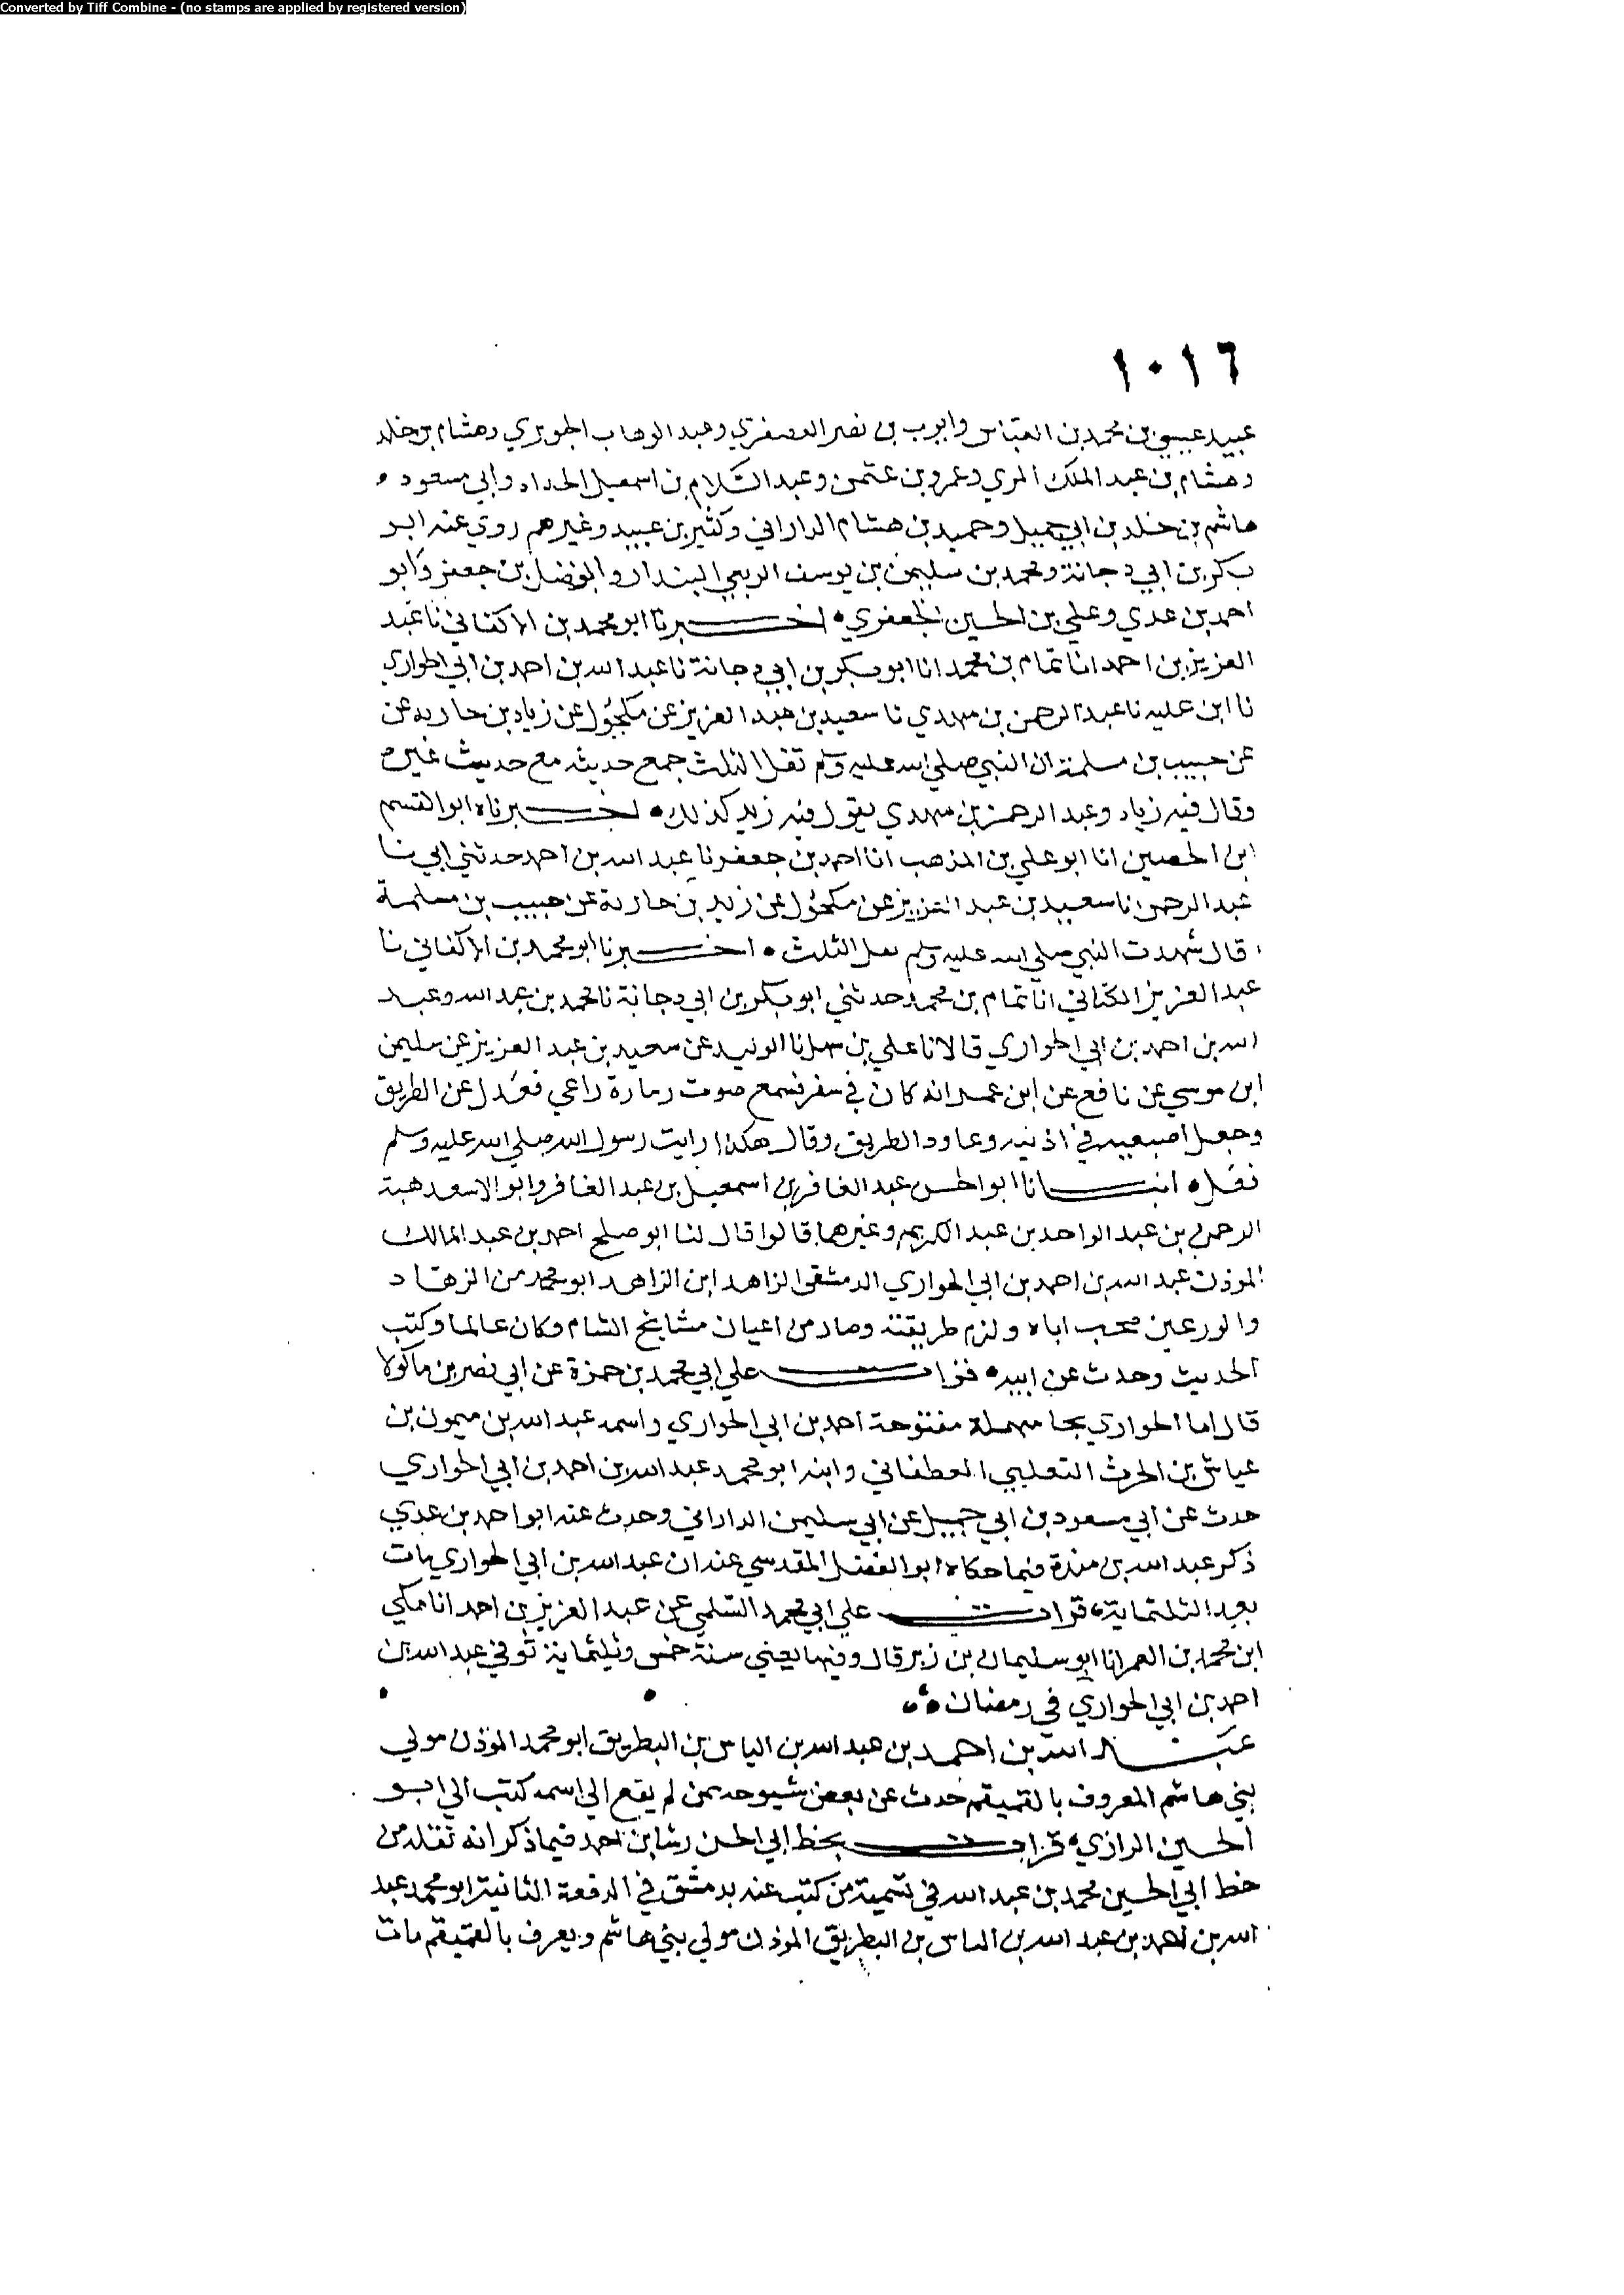 Converted by Tiff Combine - (no stamps are applied by registered version)
١٠١٦
عبيد عيسى بن محمد بن العباس وايوب بن نصر العصفري وعبد الوهاب الجوبري وهشام بن خلد
وهشام بن عبد الملك المري وعمرو بن عثمن وعبد السلام بن اسمعيل الحداد وابي مسعود
هاشم بن خلد بن ابي جميل وحميد بن هشام الداراني وكثير بن عبيد وغيرهم روي عنه ابو
بكر بن ابي دجانة ومحمد بن سليمن بن يوسف الربعي البندار والفضل بن جعفر وابو
احمد بن عدي وعلي بن الحسين الجعفري اخبرنا ابو محمد بن الاكفاني نا عبد
العزيز بن احمد انا تمام بن محمد انا ابو بكر بن ابي دجانة نا عبد الله بن احمد بن ابي الحواري
نا ابن عليه نا عبد الرحمن بن مهدي نا سعيد بن عبد العزيز عن مكحول عن زياد بن جاريه عن
عن حبيب بن مسلمة ان النبي صلي الله عليه وسلم نفل الثلث جمع حديثه مع حديث غيره
وقال فيه زياد وعبد الرحمن بن مهدي يقول فيه زيد كذلك اخبرناه ابو القسم
ابن الحصين انا ابو علي بن المذهب انا احمد بن جعفر نا عبد الله بن احمد حدثني ابي نا
عبد الرحمن نا سعيد بن عبد العزيز عن مكحول عن زيد بن جارية عن حبيب بن مسلمة
قال شهدت النبي صلي الله عليه وسلم نفل الثلث اخبرنا ابو محمد بن الاكفاني نا
عبد العزيز الكتاني انا تمام بن محمد حدثني ابو بكر بن ابي دجانة نا محمد بن عبد الله وعبد
الله بن احمد بن ابي الحواري قالا نا علي بن سهل نا الوليد عن سعيد بن عبد العزيز عن سليمن
ابن موسي عن نافع عن ابن عمر انه كان في سفر فسمع صوت زمارة راعي فعدل عن الطريق
وجعل اصبعيه في اذنيه وعاود الطريق وقال هكذا رايت رسول الله صلي الله عليه وسلم
فعل انبانا ابو الحسن عبد الغافر بن اسمعيل بن عبد الغافر وابو الاسعد هبة
الرحمن بن عبد الواحد بن عبد الكريم وغيرهما قالوا قال لنا ابو صلح احمد بن عبد المالك
الموذن عبد الله بن احمد بن ابي الحواري الدمشقي الزاهد ابن الزاهد ابو محمد من الزهاد
والورعين صحب اباه ولزم طريقته وصار من اعيان مشايخ الشام وكان عالما وكتب
الحديث وحدث عن ابيه قرات علي ابي محمد بن حمزة عن ابي نصر بن ماكولا
قال اما الحواري بحا مهملة مفتوحة احمد بن ابي الحواري واسمه عبد الله بن ميمون بن
عياش بن الحرث التعلبي الغطفاني وابنه ابو محمد عبد الله بن احمد بن ابي الحواري
حدث عن ابي مسعود بن ابي جميل عن ابي سليمن الداراني وحدث عنه ابو احمد بن عدي
ذكر عبد الله بن مندة فيما حكاه ابو الفضل المقدسي عنه ان عبد الله بن ابي الحواري مات
بعد الثلثماية قرات علي ابي محمد السلمي عن عبد العزيز بن احمد انا مكي
ابن محمد بن الغمر انا ابو سليمان بن زبر قال وفيها يعني سنة خمس وثلثماية توفي عبد الله بن
احمد بن ابي الحواري في رمضان
عبد الله بن احمد بن عبد الله بن الياس بن البطريق ابو محمد الموذن مولي
بني هاشم المعروف بالقميقم حدث عن بعض شيوخه ممن لم يقع الي اسمه كتب الي ابو
الحسين الرازي قرات بخط ابي الحسن رشا بن احمد فيما ذكر انه نقله من
خط ابي الحسين محمد بن عبد الله في تسمية من كتب عنه بدمشق في الدفعة الثانية ابو محمد عبد
الله بن احمد بن عبد الله بن الياس بن البطريق الموذن مولي بني هاشم ويعرف بالقميقم مات